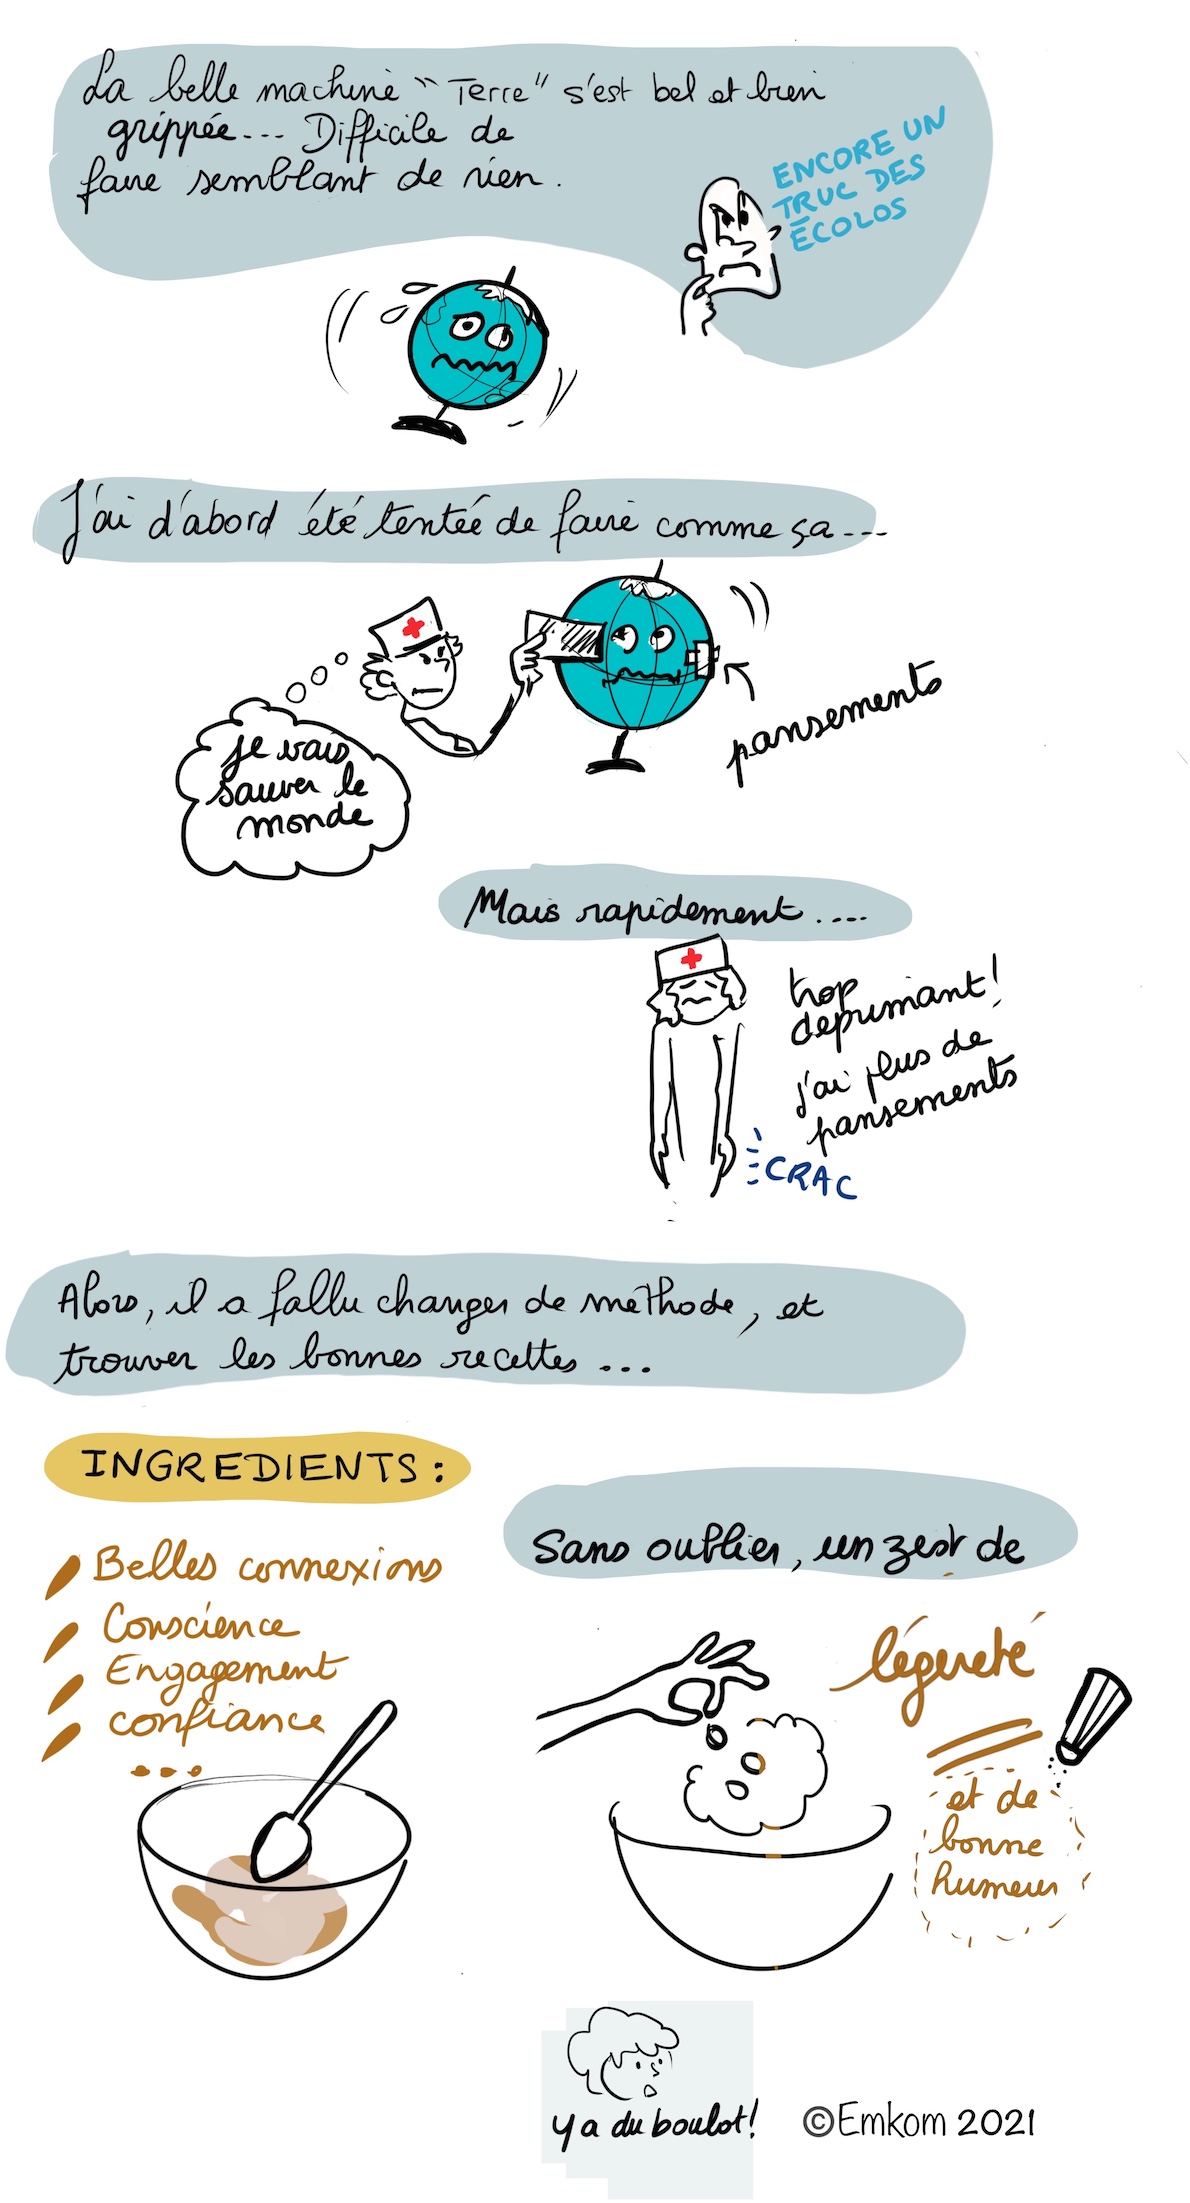 La belle machine "Terre" s'est bel et bien
grippée... Difficile de
faire semblant de rien.
ENCORE UN
TRUC DES
ÉCOLOS
J'ai d'abord été tentée de faire comme ça...
je vais
sauver le
monde
pansements
Mais rapidement....
trop
déprimant!
j'ai plus de
pansements
CRAC
Alors, il a fallu changer de méthode, et
trouver les bonnes recettes...
INGREDIENTS:
Belles connexions
Conscience
Engagement
confiance
...
Sans oublier, un zest de
légèreté
et de
bonne
humeur
y a du boulot!
©Emkom 2021